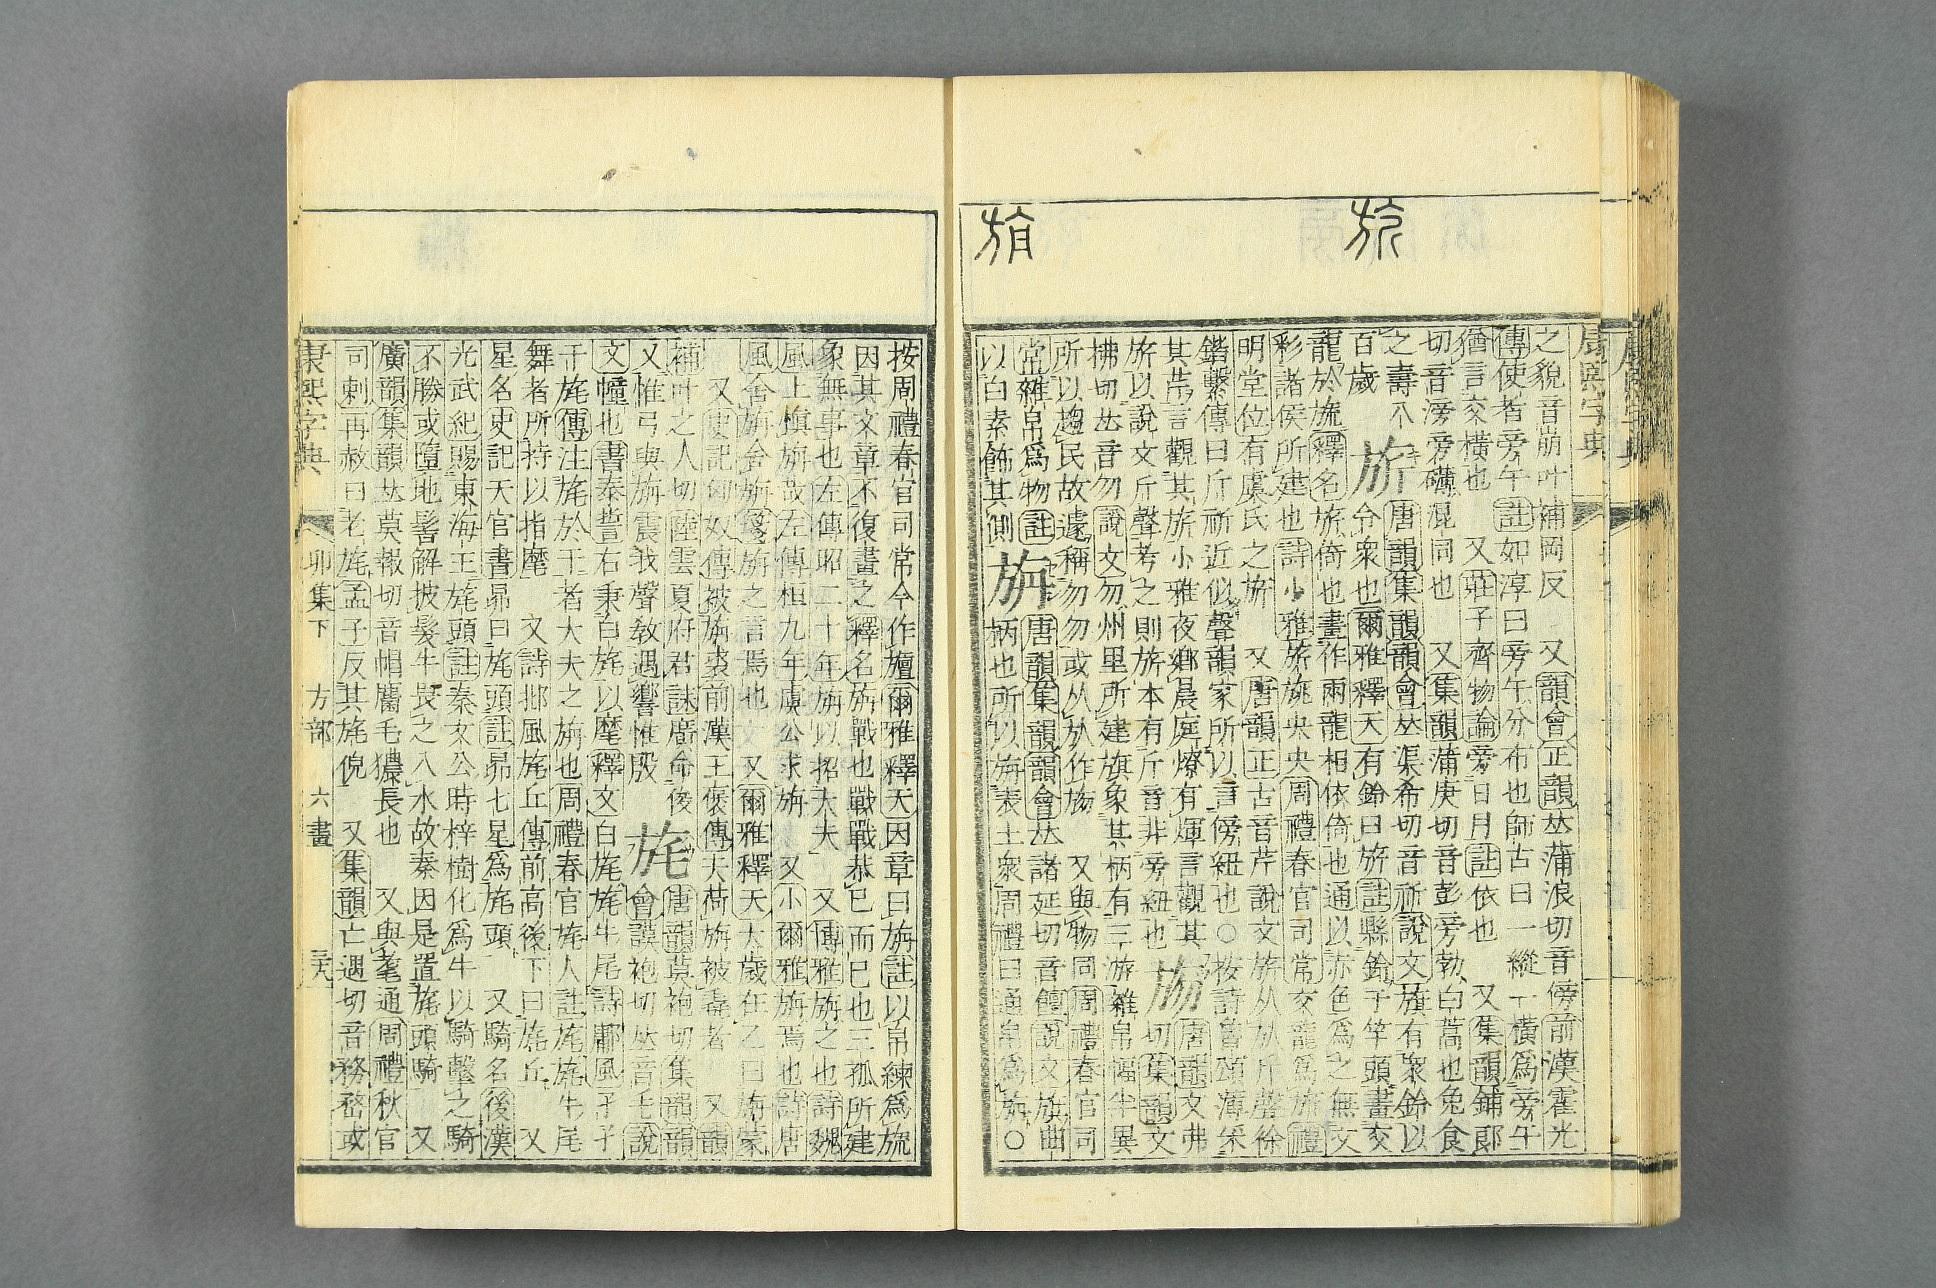 康熙字典
之貌音崩叶補岡反 又韻會正韻𠀤蒲浪切音傍前漢霍光
傳使者旁午註如淳曰旁午分布也師古曰一縱一橫爲旁午
猶言交橫也 又莊子齊物論旁日月註依也 又集韻鋪郎
切音滂旁礴混同也 又集韻蒲庚切音彭旁勃白蒿也兔食
之壽八
百歲
旂
唐韻集韻韻會𠀤渠希切音祈說文旗有衆鈴以
令衆也爾雅釋天有鈴曰旂註縣鈴于竿頭畫交
龍於旒釋名旂倚也畫作兩龍相依倚也通以赤色爲之無文
彩諸侯所建也詩小雅旂旐央央周禮春官司常交龍爲旂禮
明堂位有虞氏之旂 又唐韻正古音芹說文旂从㫃斤聲徐
鍇繫傳曰斤祈近似聲韻家所以言傍紐也○按詩魯頌薄采
其芹言觀其旂小雅夜鄕晨庭燎有煇言觀其
旂以說文斤聲考之則旂本有斤音非旁紐也
𣃦
唐韻文弗
切集韻文
拂切𠀤音勿說文勿州里所建旗象其柄有三游雜帛幅半異
所以趨民故遽稱勿勿或从㫃作𣃦 又與物同周禮春官司
常雜帛爲物註
以白素飾其側
旃
唐韻集韻韻會𠀤諸延切音饘說文旗曲
柄也所以旃表士衆周禮曰通帛爲旃○
按周禮春官司常今作旜爾雅釋天因章曰旃註以帛練爲旒
因其文章不復畫之釋名旃戰也戰戰恭已而已也三孤所建
象無事也左傳昭二十年旃以招大夫 又博雅旃之也詩魏
風上愼旃哉左傳桓九年虞公求旃 又小爾雅旃焉也詩唐
風舍旃舍旃箋旃之言焉也 又爾雅釋天大歲在乙曰旃蒙
又史記匈奴傳被旃裘前漢王褒傳夫荷旃被毳者 又韻
補叶之人切陸雲夏府君誄廣命俊
又惟弓與旃震我聲敎遇響惟殷
旄
唐韻莫袍切集韻韻
會謨袍切𠀤音毛說
文幢也書泰誓右秉白旄以麾釋文白旄旄牛尾詩鄘風孑孑
干旄傳注旄於干者大夫之旃也周禮春官旄人註旄旄牛尾
舞者所持以指麾 又詩邶風旄丘傳前高後下曰旄丘 又
星名史記天官書昴曰旄頭註昴七星爲旄頭 又騎名後漢
光武紀賜東海王旄頭註秦文公時梓樹化爲牛以騎擊之騎
不勝或墮地髻解披髮牛畏之入水故秦因是置旄頭騎 又
廣韻集韻𠀤莫報切音帽麕毛㺜長也 又與耄通周禮秋官
司刺再赦曰老旄孟子反其旄倪 又集韻亡遇切音務嵍或
康熙字典 卯集下 方部 六畫